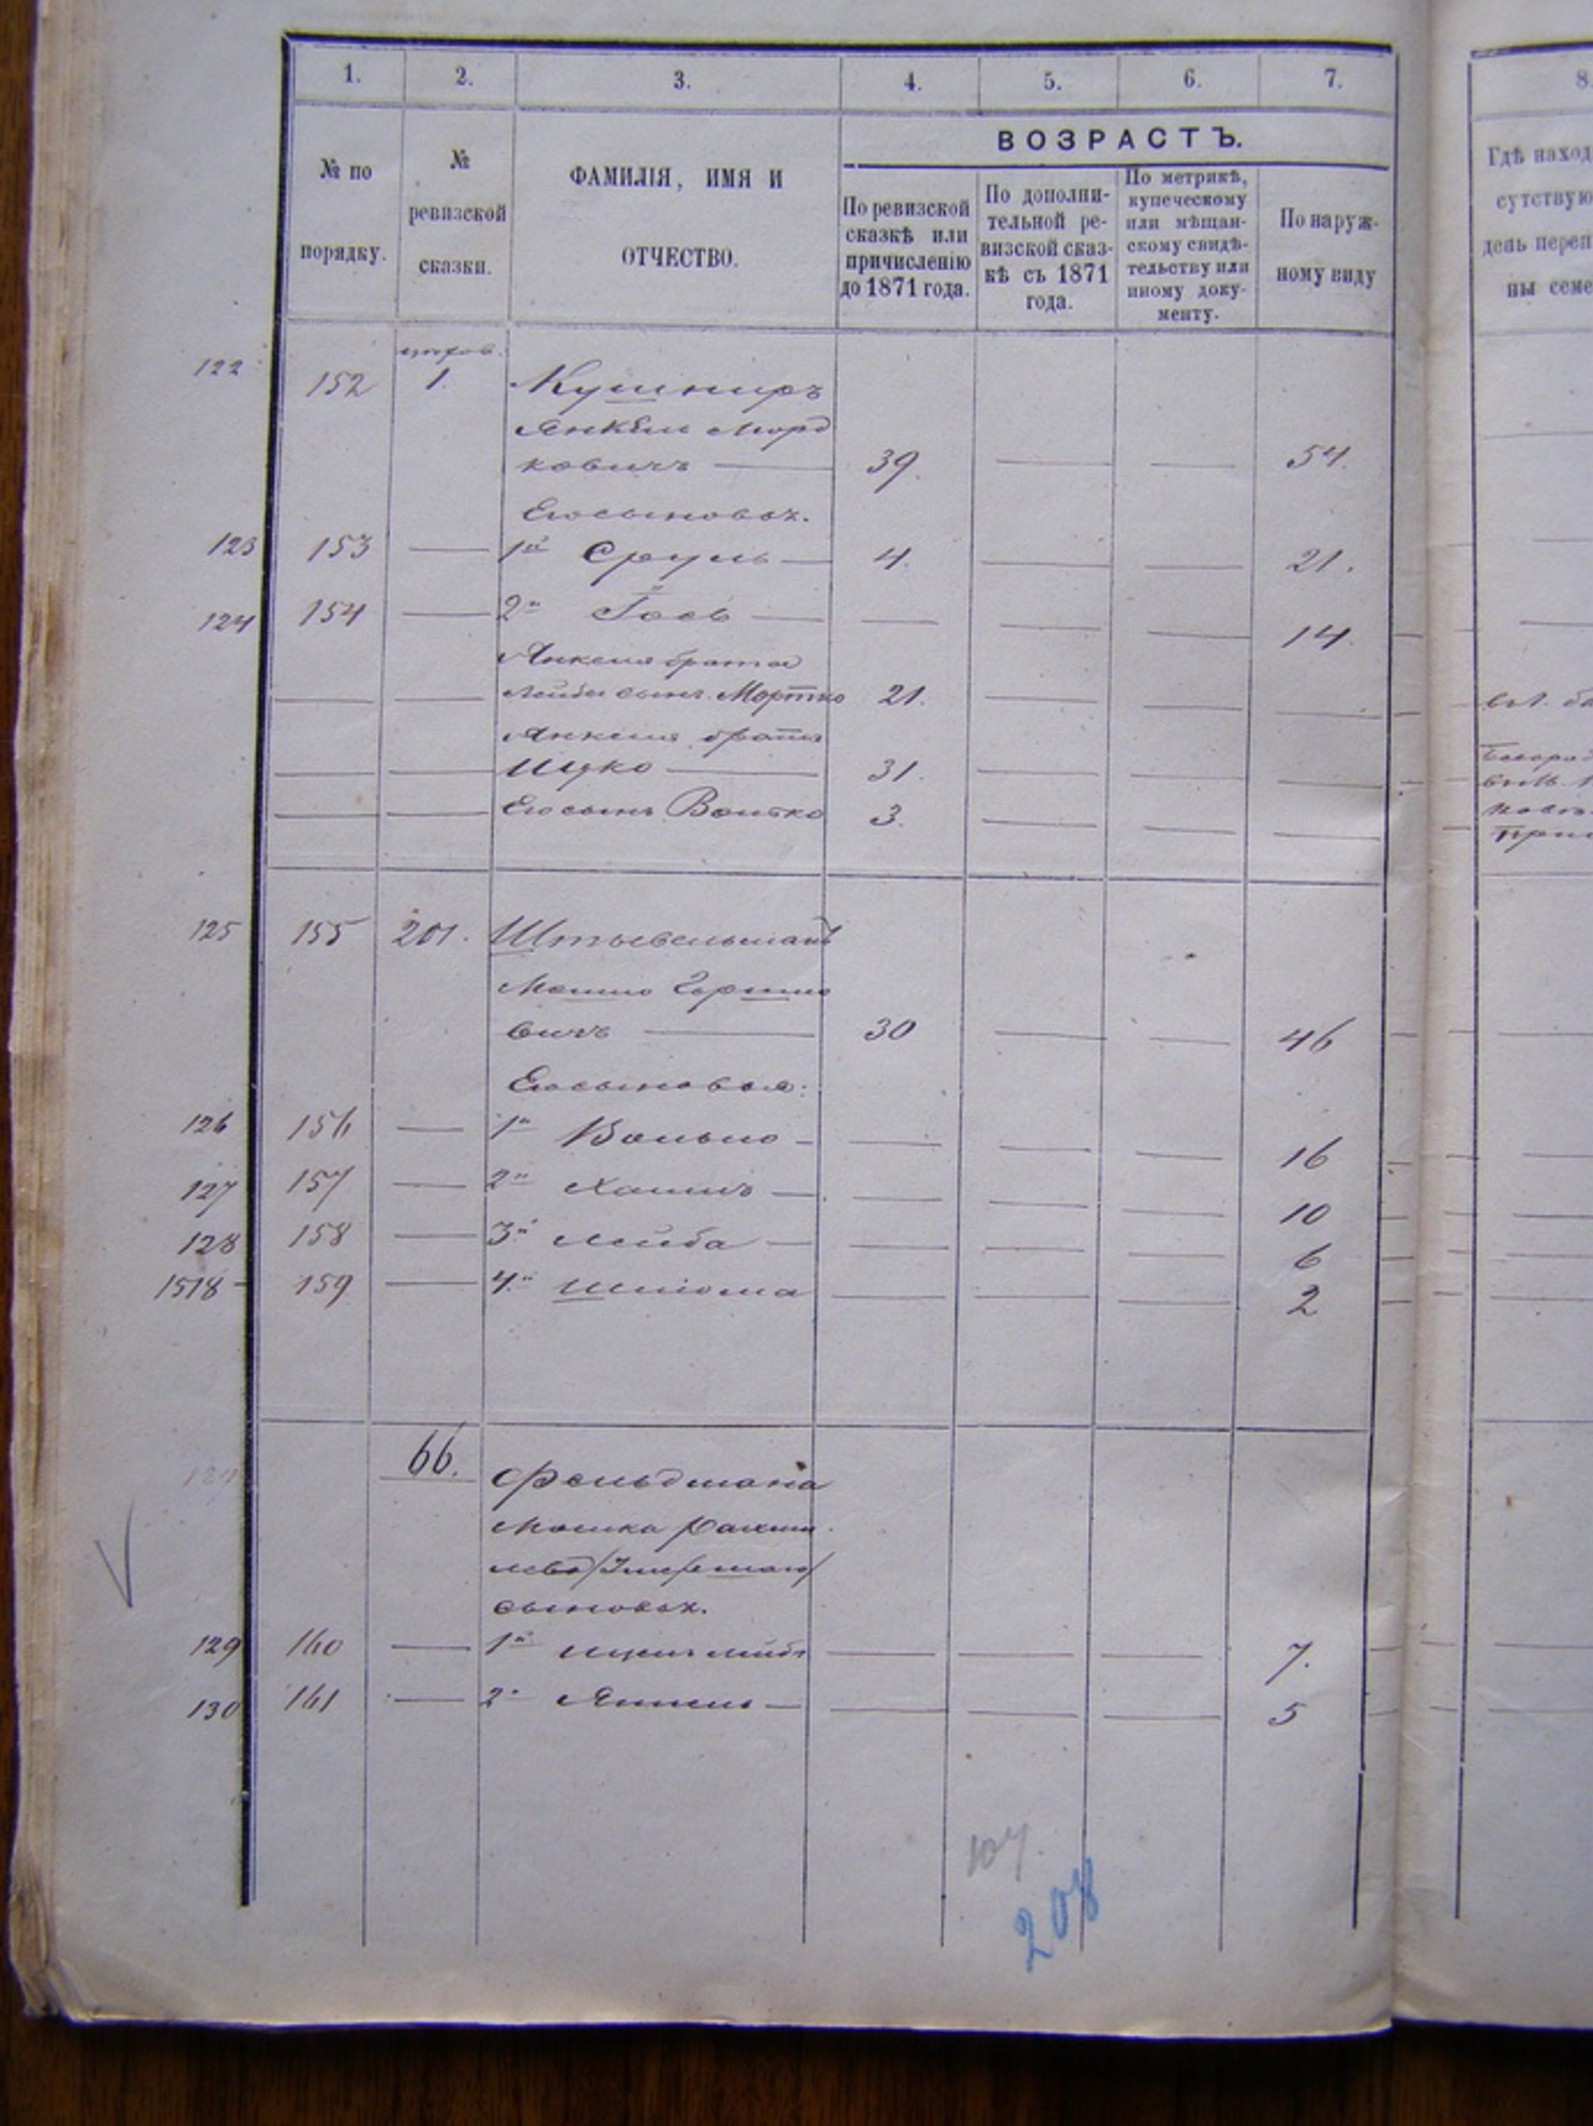 1. 2. 3. 4. 5. 6. 7.
№ по порядку.
№ ревизской сказки.
ФАМИЛІЯ, ИМЯ И ОТЧЕСТВО.
ВОЗРАСТЪ.
По ревизской сказкѣ или причисленію до 1871 года.
По дополнительной ревизской сказкѣ съ 1871 года.
По метрикѣ, купеческому или мѣщанскому свидѣтельству или иному документу.
По наружному виду
8.
Гдѣ наход
сутствую
день переп
ны семе
122 152 1. Кушниръ
Янкель Морд
ковичъ 39. 54.
Его сыновья.
123 153 1й Сруль 4. 21.
124 154 2й Іось 14.
Янкеля брата
Лейбы сынъ Мортко 21.
Янкеля братъ
Ицко 31.
Его сынъ Волько 3.
125 155 201. Штысельманъ
Мошко Гершко
вичъ 30 46
Его сыновья:
126 156 1й 16
127 157 2й Хаимъ 10
128 158 3й Лейба 6
1518 159 4й Шліома 2
66. Фельдмана
Мошка
сыновья.
129 160 1й Ицикъ Лейба 7.
130 161 2й 5
104.
208